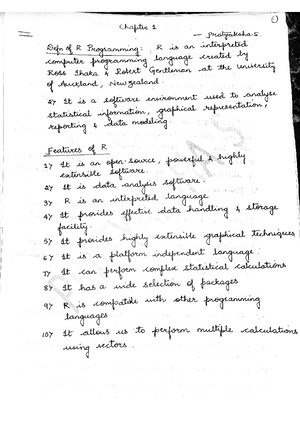 ①
Chapter 1
— Pratyaksha.S.
Defn of R Programming: R is an interpreted
computer programming language created by
Ross Ihaka & Robert Gentleman at the University
of Auckland, Newzealand.
2) It is a software environment used to analyse
statistical information, graphical representation,
reporting & data modeling.
Features of R
1) It is an open source, powerful & highly
extensible software.
2) It is data analysis software.
3) R is an interpreted language
4) It provides effective data handling & storage
facility.
5) It provides highly extensible graphical techniques
6) It is a platform independent language.
7) It can perform complex statistical calculations
8) It has a wide selection of packages
9) R is compatible with other programming
languages
10) It allows us to perform multiple calculations
using vectors.